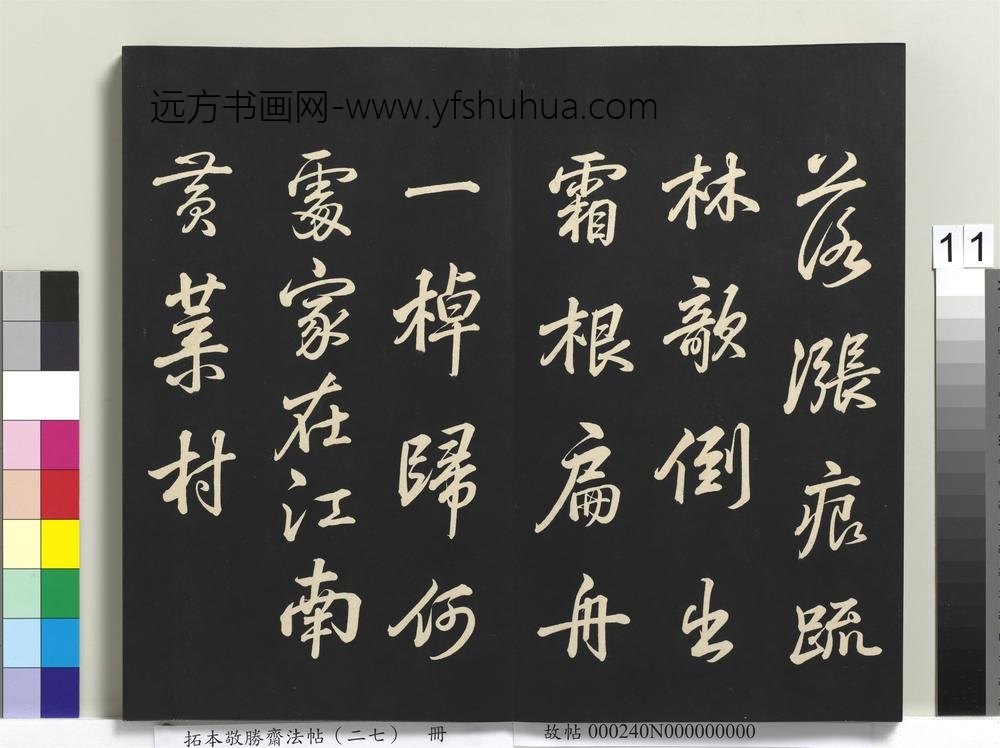 远方书画网-www.yfshuhua.com
落漲痕疏
林欹倒出
霜根扁舟
一棹歸何
處家在江南
黃葉村
11
拓本敬勝齋法帖（二七） 冊
故帖 000240N000000000